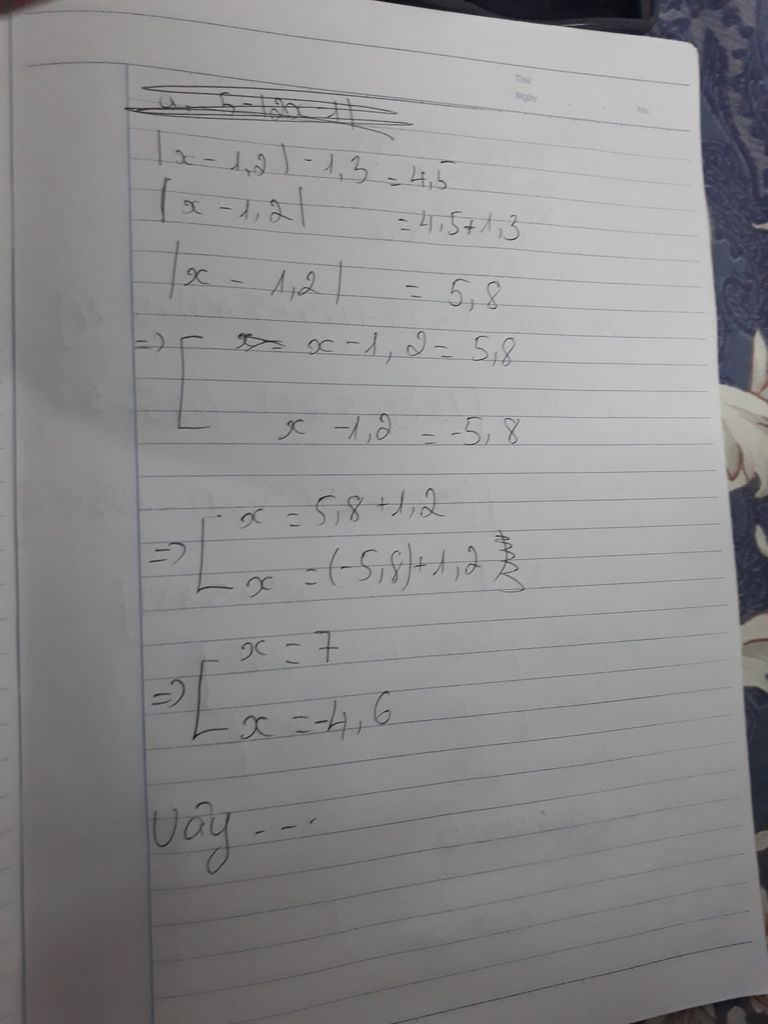 Thứ
Ngày
No.
a, 5-|2x-1|
|x-1,2|-1,3=4,5
|x-1,2| =4,5+1,3
|x - 1,2| = 5,8
=> [ x-1,2=5,8
x -1,2 =-5,8
=> [ x = 5,8+1,2
x =(-5,8)+1,2
=> [ x = 7
x =-4,6
Vậy ----